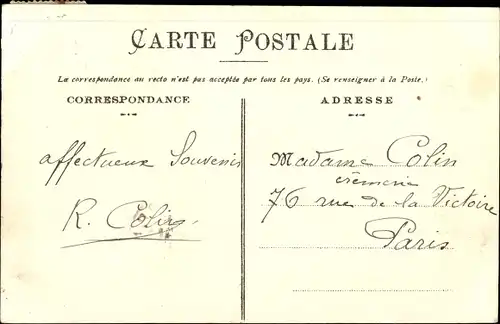 CARTE POSTALE
La correspondance au recto n'est pas acceptée par tous les pays. (Se renseigner à la Poste.)
CORRESPONDANCE
affectueux Souvenir
R. Colin
ADRESSE
Madame Colin
crèmerie
76 rue de la Victoire
Paris